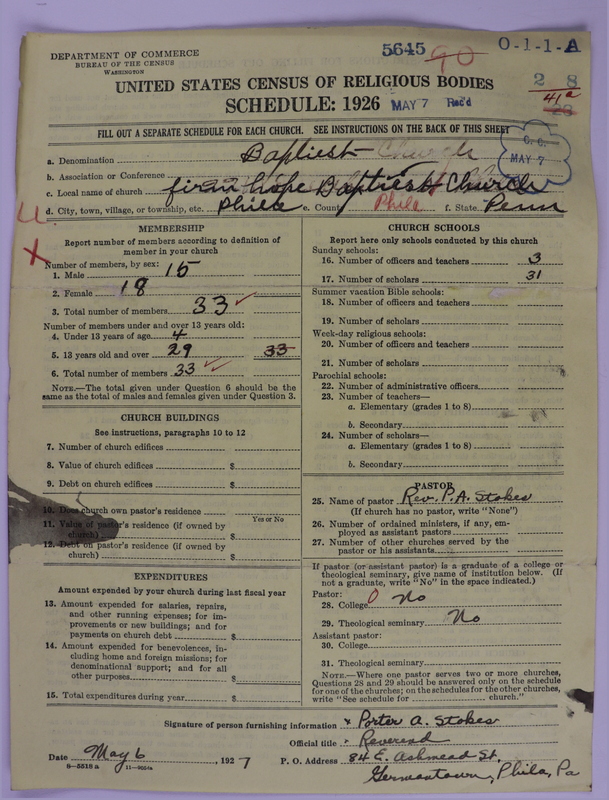 DEPARTMENT OF COMMERCE
BUREAU OF THE CENSUS
WASHINGTON
5645 90 O-1-1-A
UNITED STATES CENSUS OF RELIGIOUS BODIES
2 8
SCHEDULE: 1926 MAY 7 Rec'd
41a
28
FILL OUT A SEPARATE SCHEDULE FOR EACH CHURCH. SEE INSTRUCTIONS ON THE BACK OF THIS SHEET
C. C. MAY 7
a. Denomination Baptiest Church
b. Association or Conference
c. Local name of church firm hope Baptiest Church
d. City, town, village, or township, etc. Phila e. County Phila f. State Penn
MEMBERSHIP
Report number of members according to definition of
member in your church
Number of members, by sex:
1. Male 15
2. Female 18
3. Total number of members 33
Number of members under and over 13 years old:
4. Under 13 years of age 4
5. 13 years old and over 29 33
6. Total number of members 33
NOTE.—The total given under Question 6 should be the
same as the total of males and females given under Question 3.
CHURCH BUILDINGS
See instructions, paragraphs 10 to 12
7. Number of church edifices
8. Value of church edifices $
9. Debt on church edifices $
10. Does church own pastor's residence
Yes or No
11. Value of pastor's residence (if owned by
church) $
12. Debt on pastor's residence (if owned by
church) $
EXPENDITURES
Amount expended by your church during last fiscal year
13. Amount expended for salaries, repairs,
and other running expenses; for im-
provements or new buildings; and for
payments on church debt $
14. Amount expended for benevolences, in-
cluding home and foreign missions; for
denominational support; and for all
other purposes $
15. Total expenditures during year $
CHURCH SCHOOLS
Report here only schools conducted by this church
Sunday schools:
16. Number of officers and teachers 3
17. Number of scholars 31
Summer vacation Bible schools:
18. Number of officers and teachers
19. Number of scholars
Week-day religious schools:
20. Number of officers and teachers
21. Number of scholars
Parochial schools:
22. Number of administrative officers
23. Number of teachers—
a. Elementary (grades 1 to 8)
b. Secondary
24. Number of scholars—
a. Elementary (grades 1 to 8)
b. Secondary
PASTOR
25. Name of pastor Rev. P. A. Stokes
(If church has no pastor, write "None")
26. Number of ordained ministers, if any, em-
ployed as assistant pastors
27. Number of other churches served by the
pastor or his assistants
If pastor (or assistant pastor) is a graduate of a college or
theological seminary, give name of institution below. (If
not a graduate, write "No" in the space indicated.)
Pastor:
28. College 0 No
29. Theological seminary No
Assistant pastor:
30. College
31. Theological seminary
NOTE.—Where one pastor serves two or more churches,
Questions 28 and 29 should be answered only on the schedule
for one of the churches; on the schedules for the other churches,
write "See schedule for church."
Signature of person furnishing information x Porter A. Stokes
Official title Reverend
Date May 6, 1927 P. O. Address 84 E. Ashmead St.
8—5518 a 11—9054a Germantown, Phila, Pa